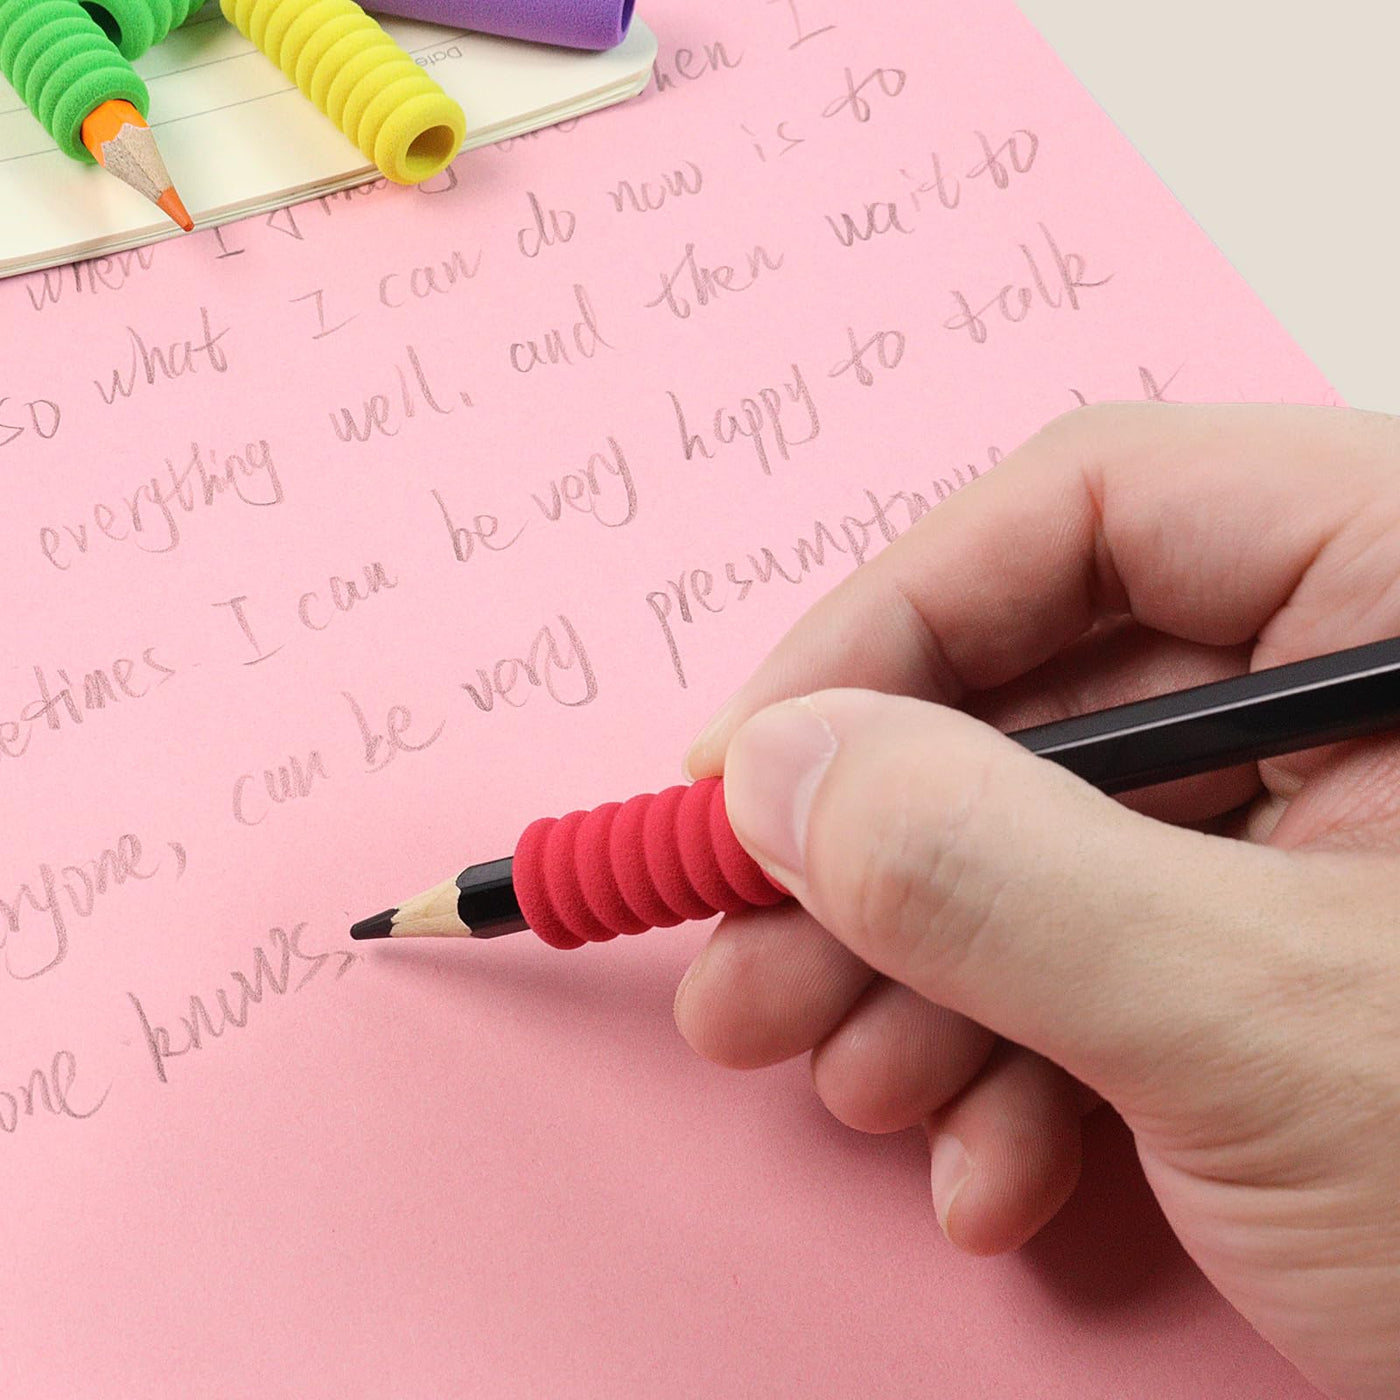 Date
when I
when I
so what I can do now is to
everything well, and then wait to
etimes I can be very happy to talk
eryone, can be very presumptuous
one knows,